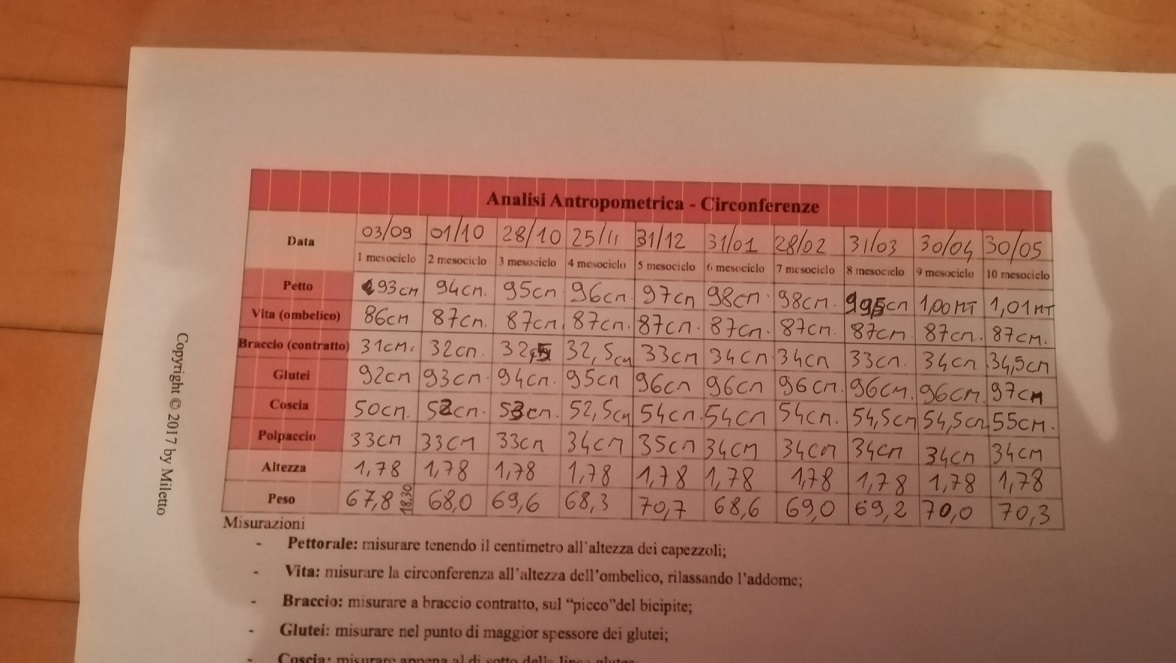 Analisi Antropometrica - Circonferenze
Data 03/09 01/10 28/10 25/11 31/12 31/01 28/02 31/03 30/04 30/05
1 mesociclo 2 mesociclo 3 mesociclo 4 mesociclo 5 mesociclo 6 mesociclo 7 mesociclo 8 mesociclo 9 mesociclo 10 mesociclo
Petto 93cm 94cm. 95cm 96cm. 97cm 98cm. 98cm. 1,00MT 1,01MT
Vita (ombelico) 86cm 87cm. 87cm. 87cm. 87cm. 87cm. 87cm. 87cm. 87cm. 87cm.
Braccio (contratto) 31cm. 32cm. 32,5 32,5cm 33cm 34cm 34cm 33cm. 34cm 34,5cm
Glutei 92cm 93cm. 94cm. 95cm 96cm 96cm 96cm. 96cm. 96cm. 97cm
Coscia 50cm. 52cm. 53cm. 52,5cm 54cm. 54cm 54cm. 54,5cm 54,5cm 55cm.
Polpaccio 33cm 33cm 33cm 34cm 35cm 34cm 34cm 34cm 34cm 34cm
Altezza 1,78 1,78 1,78 1,78 1,78 1,78 1,78 1,78 1,78 1,78
Peso 67,8 18.30 68,0 69,6 68,3 70,7 68,6 69,0 69,2 70,0 70,3
Misurazioni
- Pettorale: misurare tenendo il centimetro all'altezza dei capezzoli;
- Vita: misurare la circonferenza all'altezza dell'ombelico, rilassando l'addome;
- Braccio: misurare a braccio contratto, sul "picco"del bicipite;
- Glutei: misurare nel punto di maggior spessore dei glutei;
- Coscia: misurare appena al di sotto della linea
Copyright © 2017 by Miletto